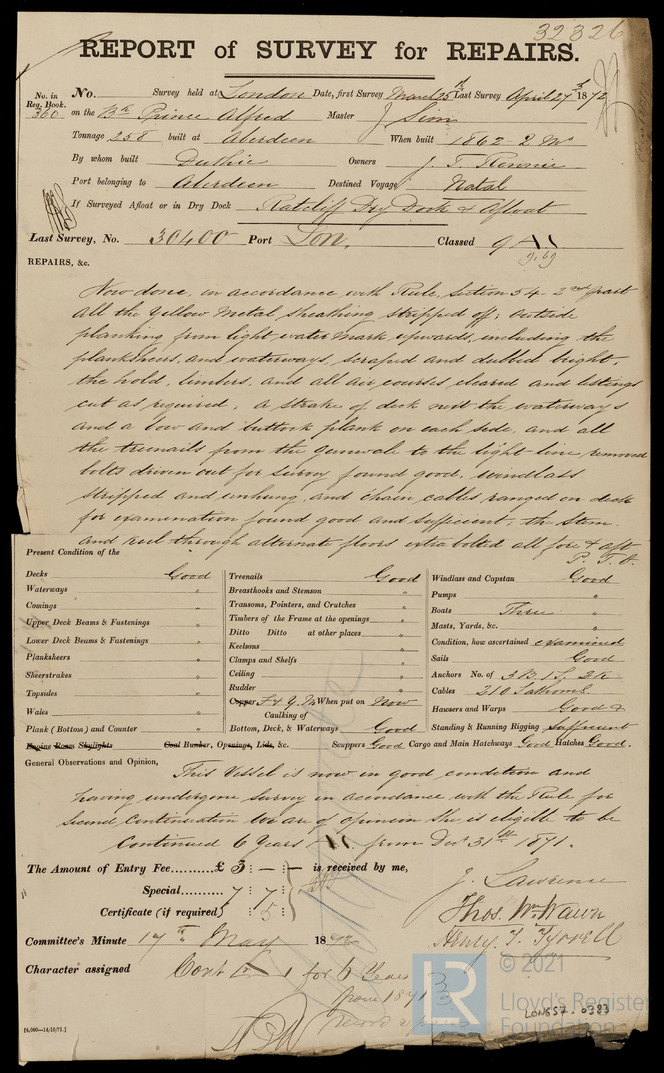 32326
REPORT of SURVEY for REPAIRS.
No. in Reg. Book. 360
No. Survey held at London Date, first Survey March 25th Last Survey April 27th 1872
on the Bk Prince Alfred Master J Sim
Tonnage 258 built at Aberdeen When built 1862 - 2 Mo
By whom built Duthie Owners J. T. Rennie
Port belonging to Aberdeen Destined Voyage Natal
If Surveyed Afloat or in Dry Dock Ratcliff Dry Dock & Afloat
Last Survey, No. 30400 Port Lon. Classed 9 A 1
9.69
REPAIRS, &c.
Now done, in accordance with Rule, Section 54 - 2nd part
all the Yellow Metal sheathing stripped off; outside
planking from light water mark upwards, including the
planksheers, and waterways, scraped and dubbed bright,
the hold, limbers, and all air courses cleared and listings
cut as required, a strake of deck next the waterways
and a bow and buttock plank on each side, and all
the treenails from the gunwale to the light line removed
bolts driven out for survey found good, windlass
stripped and unhung, and chain cables ranged on deck
for examination found good and sufficient, the stem
and keel through alternate floors extra bolted all fore & aft
P. T. O.
Present Condition of the
Decks Good
Waterways "
Comings "
Upper Deck Beams & Fastenings "
Lower Deck Beams & Fastenings "
Planksheers "
Sheerstrakes "
Topsides "
Wales "
Plank (Bottom) and Counter "
Engine Room Skylights Coal Bunker, Openings, Lids, &c.
Treenails Good
Breasthooks and Stemson "
Transoms, Pointers, and Crutches "
Timbers of the Frame at the openings "
Ditto Ditto at other places "
Keelsons "
Clamps and Shelfs "
Ceiling "
Rudder "
Copper F & Y. M When put on Now
Caulking of
Bottom, Deck, & Waterways Good
Scuppers Good Cargo and Main Hatchways Good Hatches Good.
Windlass and Capstan Good
Pumps "
Boats Three "
Masts, Yards, &c. "
Condition, how ascertained examined
Sails Good
Anchors No. of 3 B. 1 S. 2 K
Cables 210 Fathoms
Hawsers and Warps Good &
Standing & Running Rigging Sufficient
General Observations and Opinion,
This Vessel is now in good condition and
having undergone survey in accordance with the Rule for
Second Continuation we are of opinion she is eligible to be
Continued 6 Years A 1 from Decr 31st 1871.
The Amount of Entry Fee......... £ 3 : - : - is received by me,
Special......... 7 : 7 :
Certificate (if required) : 5 :
J. Lawrence
Thos. Wm Wawn
Henry J. Tyrrell
Committee's Minute 17th May 1872
Character assigned Cont A 1 for 6 Years
from 1871
[6,000—14/10/71.]
LR
© 2021
Lloyd's Register
Foundation
LON557-0383